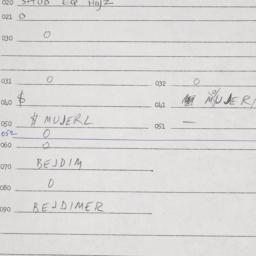 020 STUB EQ HOJZ
021 O
030 O
031 O 032 O
040 $ 041 MUJER/
050 $ MUJERL 051 —
052 O
060 O
070 BEJDIM
080 O
090 BEJDIMER